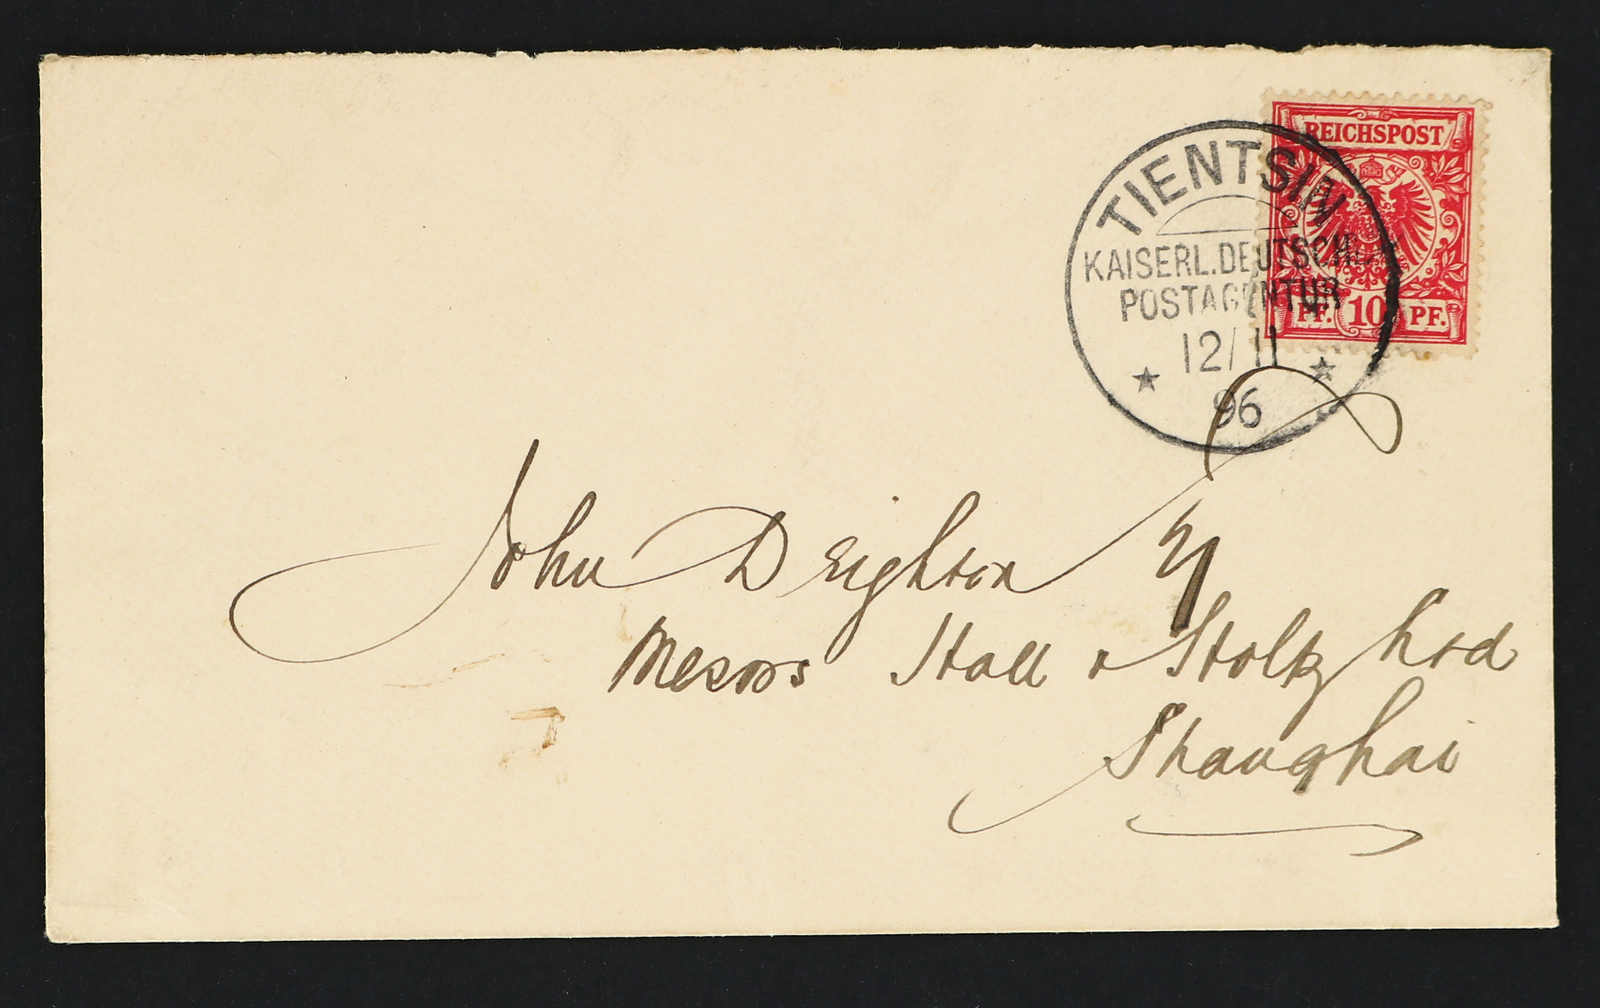 REICHSPOST
PF. 10 PF.
TIENTSIN
KAISERL. DEUTSCHE
POSTAGENTUR
12/11
96
John Deighton
Messrs Hall & Stoltz Ltd
Shanghai